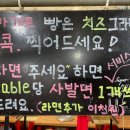 빵은 치즈그라
콕 찍어드세요!
라면 "주세요" 하면
able당 사발면 1개씩
드려요. (라면추가 이천원)